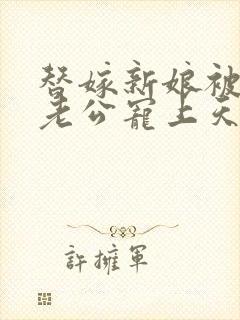 替嫁新娘被
老公寵上天
許擁軍